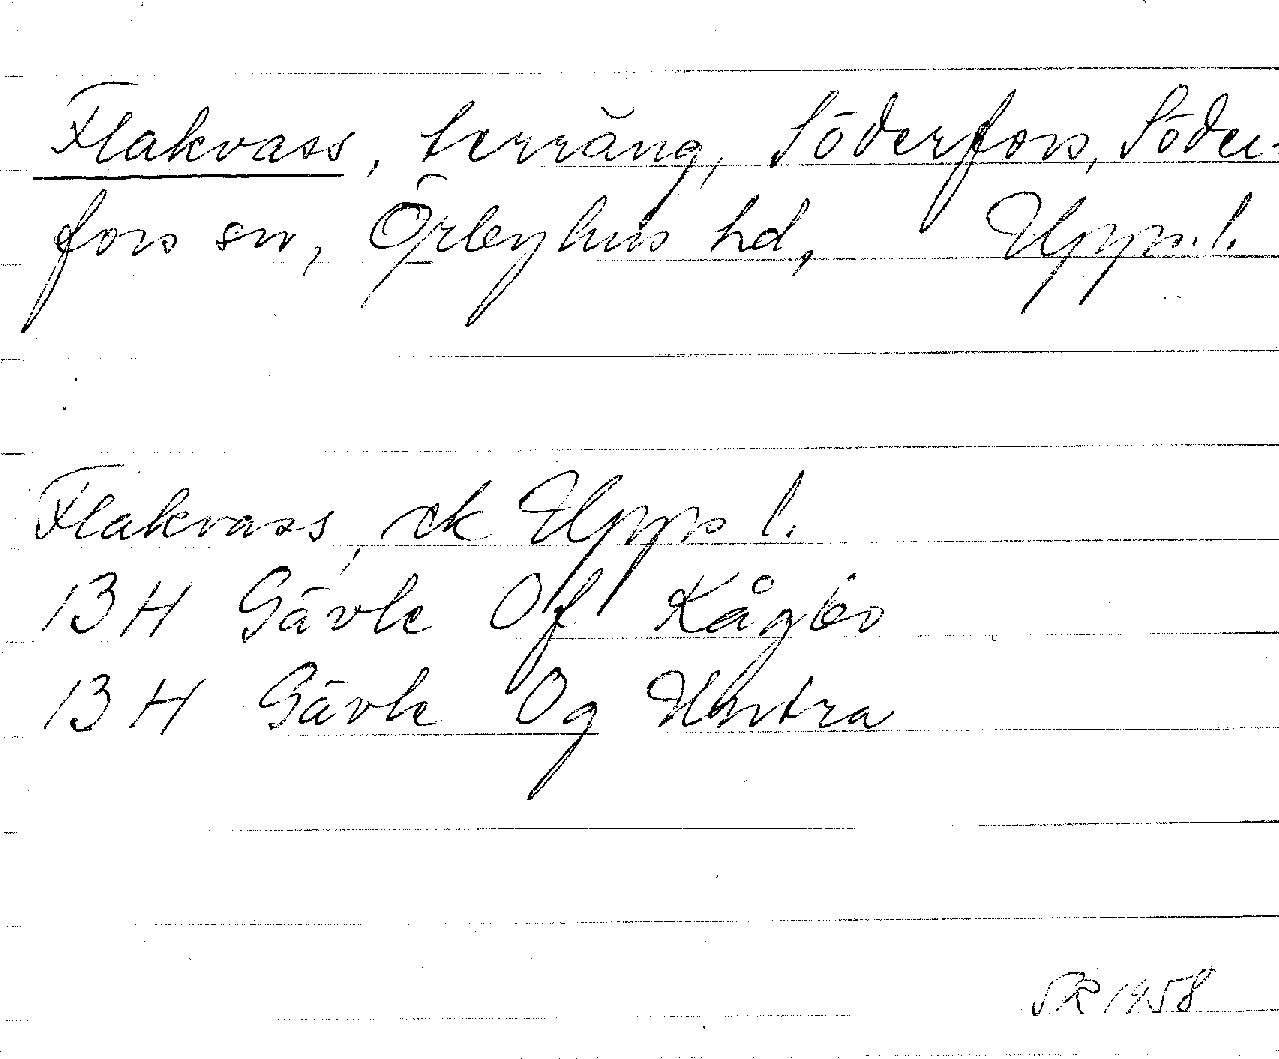 Flakvass, terräng, Söderfors, Söder-
fors sn, Örbyhus hd, Upps. l.
Flakvass, ck Upps l.
13 H Gävle Of Kågbo
13 H Gävle Og Untra
SR 1958